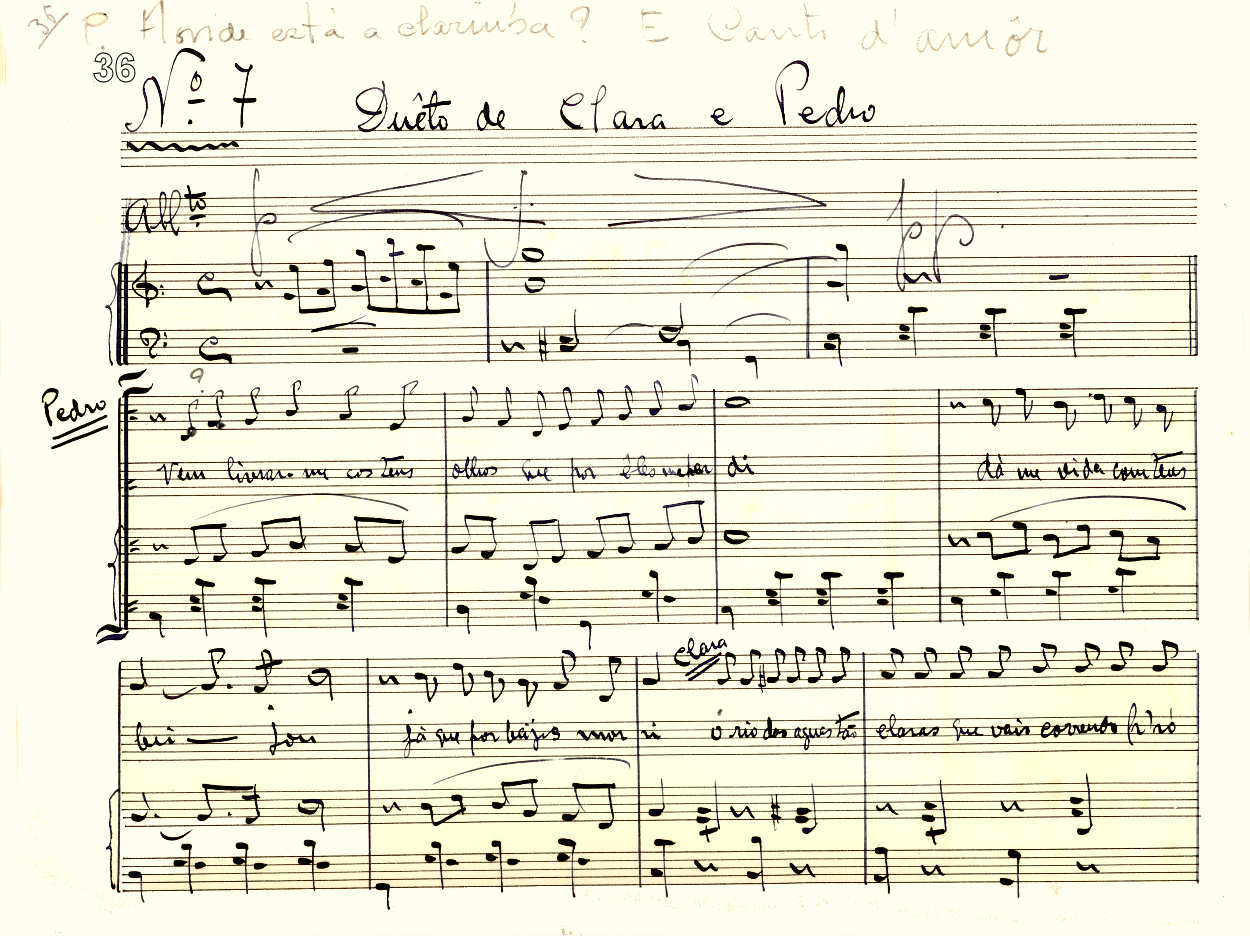 P. Aonde está a clarinha? E Canto d'amôr
36
Nº 7 Duêto de Clara e Pedro
Allto p f pp
Pedro
Vem livrar-me cos teus olhos que por êles me per di dá me vida com teus
Clara
bei — jou já que por beijos mor ri ó rio das aguas tão claras que vais correndo